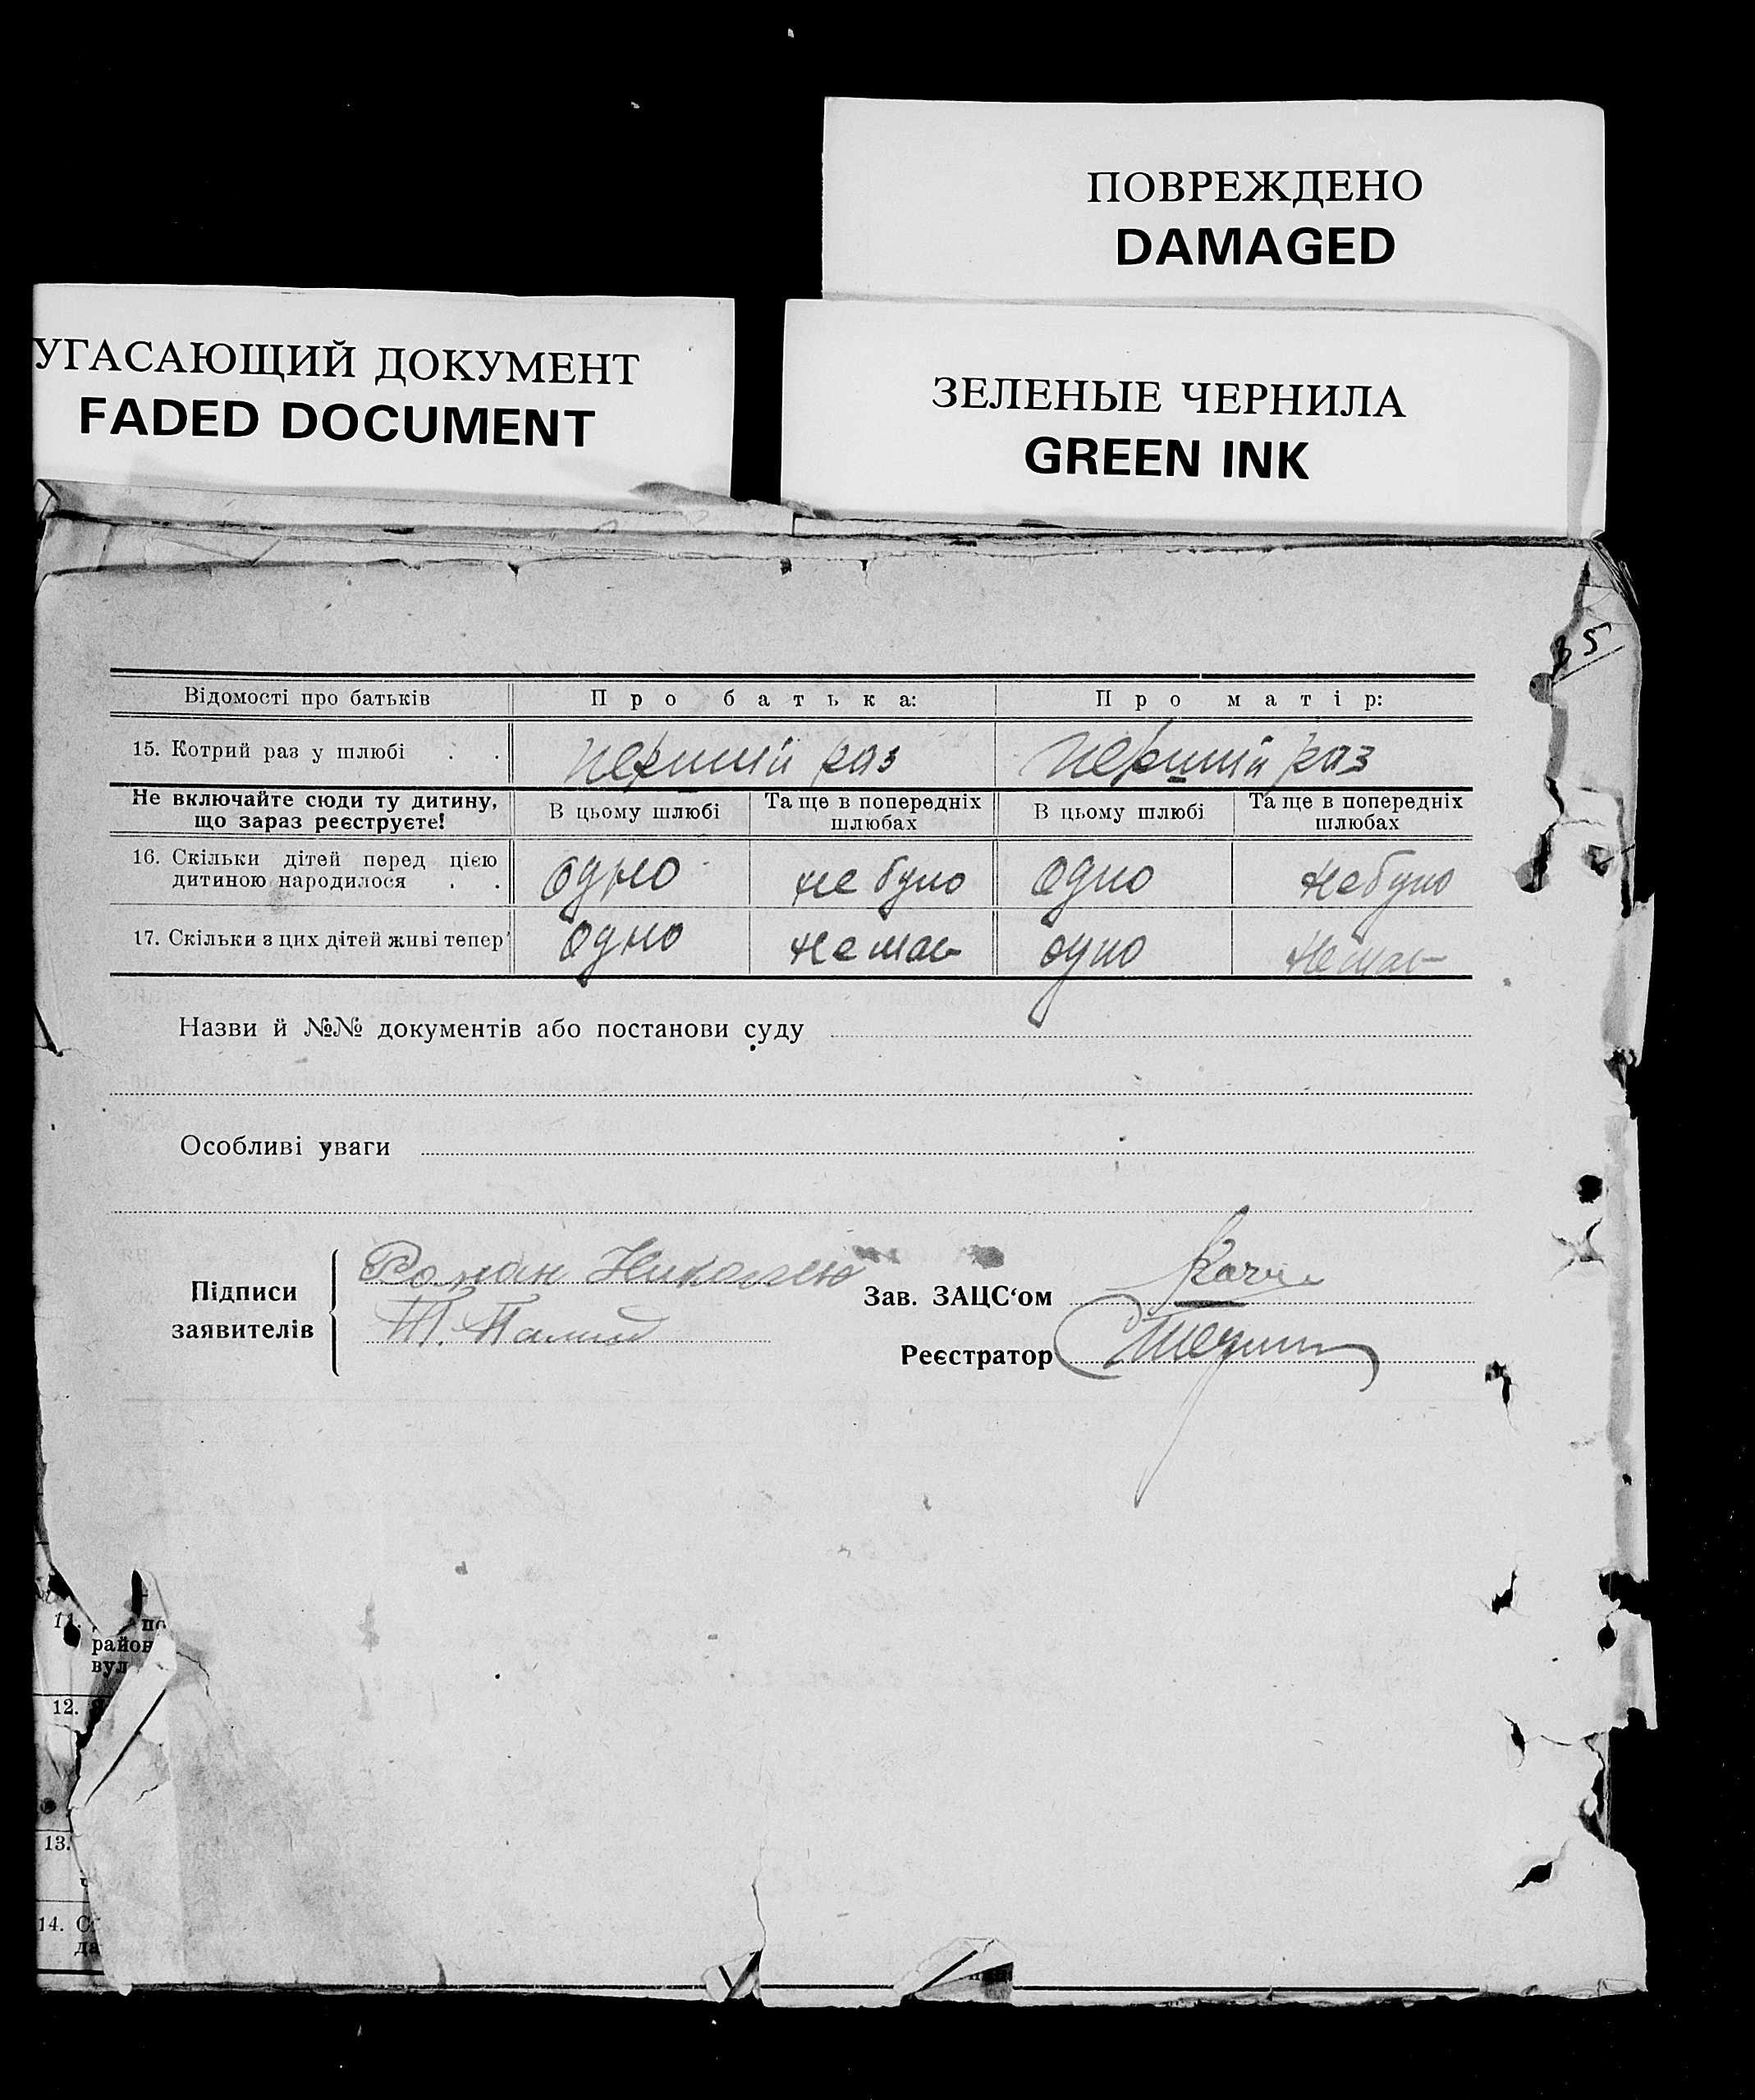 ПОВРЕЖДЕНО
DAMAGED
УГАСАЮЩИЙ ДОКУМЕНТ
FADED DOCUMENT
ЗЕЛЕНЫЕ ЧЕРНИЛА
GREEN INK
5
Відомості про батьків Про батька: Про матір:
15. Котрий раз у шлюбі . . перший раз перший раз
Не включайте сюди ту дитину, що зараз реєструєте! В цьому шлюбі Та ще в попередніх шлюбах В цьому шлюбі Та ще в попередніх шлюбах
16. Скільки дітей перед цією дитиною народилося . . одно не було одно не було
17. Скільки з цих дітей живі тепер одно немає одно немає
Назви й №№ документів або постанови суду
Особливі уваги
Підписи заявителів
Роман
Т.
Зав. ЗАЦС‘ом
Реєстратор
11. по
район
вул
12.
13.
14. С
да